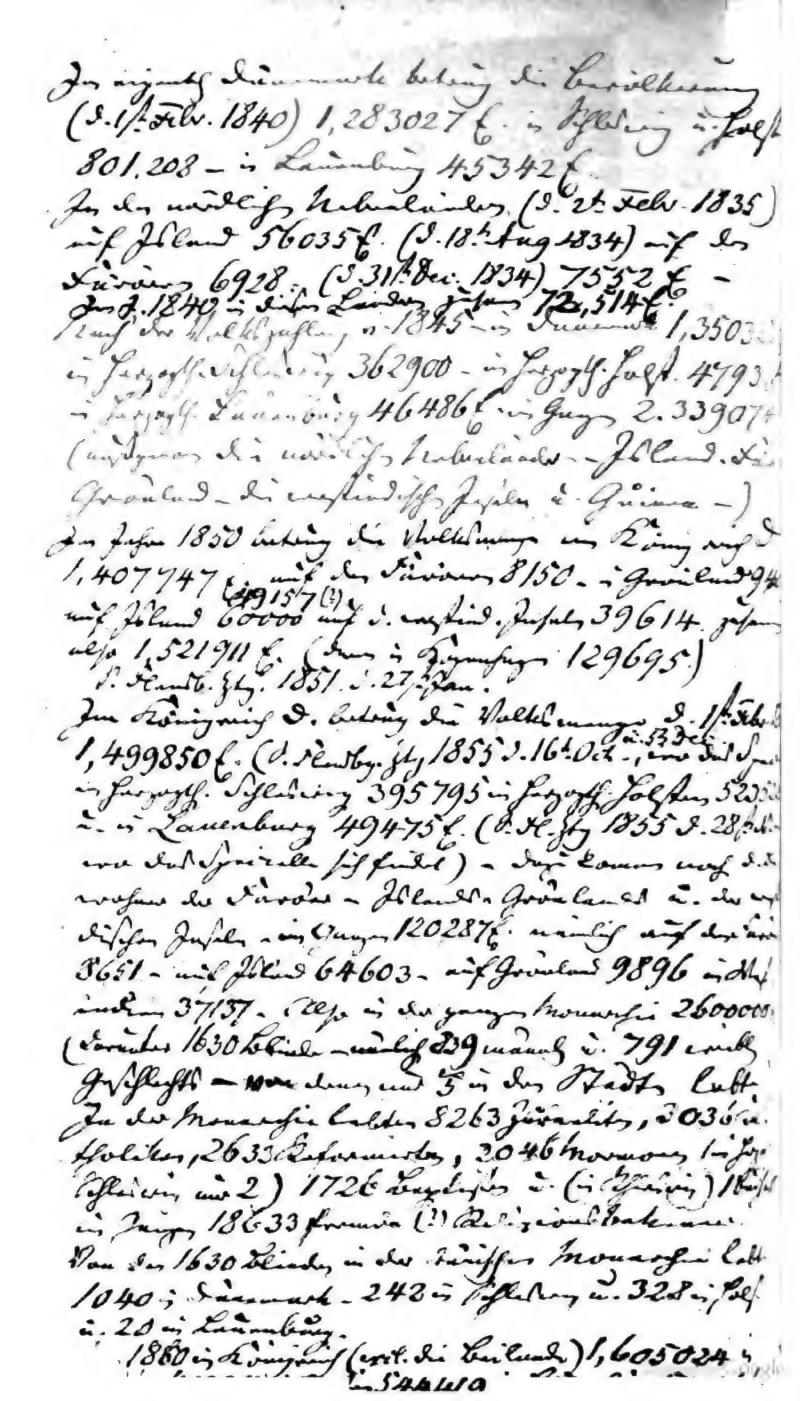 Im eigentl. Dänemark betrug die Bevölkerung
(d. 1st. Febr. 1840) 1,283027 E. in Schleswig u. Holst
801.208 – in Lauenburg 45342 E.
In den nördlichen Nebenländern (d. 2t. Febr. 1835)
auf Island 56035 E. (d. 18t. Aug 1834) auf den
Färöern 6928. (d. 31st. Dec. 1834) 7552 E –
Im J. 1840 in diesen Landen zusam 72,514 E.
Nach der Volkszählung v. 1845 – in Dänemark 1,3503
in Herzogth. Schleswig 362900 – in Herzogth. Holst. 4793
in Herzogth. Lauenburg 46486 E. im Ganzen 2.33907
( die nördlichen Nebenländer – Island. Fär
Grönland – die westindischen Inseln u. Guinea –)
Im Jahre 1850 betrug die Volksmenge im Königreich D
1,407747 E. auf den Färöern 8150 – in Grönland 94
49157 (?)
auf Island 60000 auf d. westind. Inseln 39614. zusam
also 1,521911 E. (denn in Kopenhagen 129695.)
S. Flensb. Ztg. 1851. d. 27st. Jan.
Im Königreich D. betrug die Volksmenge d. 1st. Febr.
1,499850 E. (S. Flensbg. Ztg 1855 d. 16t. Oct. , wo das Spe
in Herzogth. Schleswig 395795 in Herzogth. Holstein 523
u. in Lauenburg 49475 E. (S. Fl. Ztg 1855 d. 28st.
wo das Specielle sich findet) – dazu kommen noch d.
wohner der Färöer – Islands – Grönlands u. der west
dischen Inseln – im Ganzen 120287 E. nämlich auf den Fär
8651 – auf Island 64603 – auf Grönland 9896 in West
indien 37137 – Also in der ganzen Monarchie 2600000
(darunter 1630 Blinde – nämlich 839 männl u. 791 weibl
Geschlechts – von denen nur 1/5 in den Städten lebte
In der Monarchie lebten 8263 Israeliten, Ka
tholiken, 2633 Reformirte, Mormonen (im Herz
Schleswig nur 2) 1726 Baptisten u. (in Schleswig) 1
im Ganzen 18633 fremde (?) Religionsbekenner.
Von den 1630 Blinden in der dänischen Monarchie lebt
1040 in Dänemark – 242 in Schleswig u. 328 in Holst
u. 20 in Lauenburg.
1860 in Königreich (excl. die Beilande) 1,605024 in